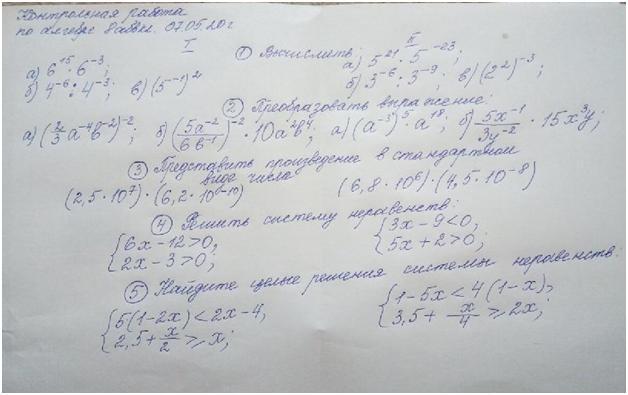 Контрольная работа
по алгебре 8 авви. 07.05.20 г
I II
① Вычислить:
а) 6¹⁵ : 6⁻³; а) 5²¹ · 5⁻²³;
б) 4⁻⁶ : 4⁻³; в) (5⁻¹)²; б) 3⁻⁶ : 3⁻⁹; в) (2²)⁻³;
② Преобразовать выражение:
а) (2/3 a⁻⁴b⁻²)⁻²; б) (5a⁻²/6b⁻¹)⁻² · 10a²b⁴; а) (a⁻³)⁵ · a¹⁸; б) 5x⁻¹/3y⁻² · 15x³y;
③ Представить произведение в стандартном
виде числа
(2,5 · 10⁷) · (6,2 · 10⁻¹⁰) (6,8 · 10⁶) · (4,5 · 10⁻⁸)
④ Решить систему неравенств:
{6x − 12 > 0, {3x − 9 < 0,
{2x − 3 > 0; {5x + 2 > 0;
⑤ Найдите целые решения системы неравенств:
{5(1 − 2x) < 2x − 4, {1 − 5x < 4(1 − x),
{2,5 + x/2 ⩾ x; {3,5 + x/4 ⩾ 2x;